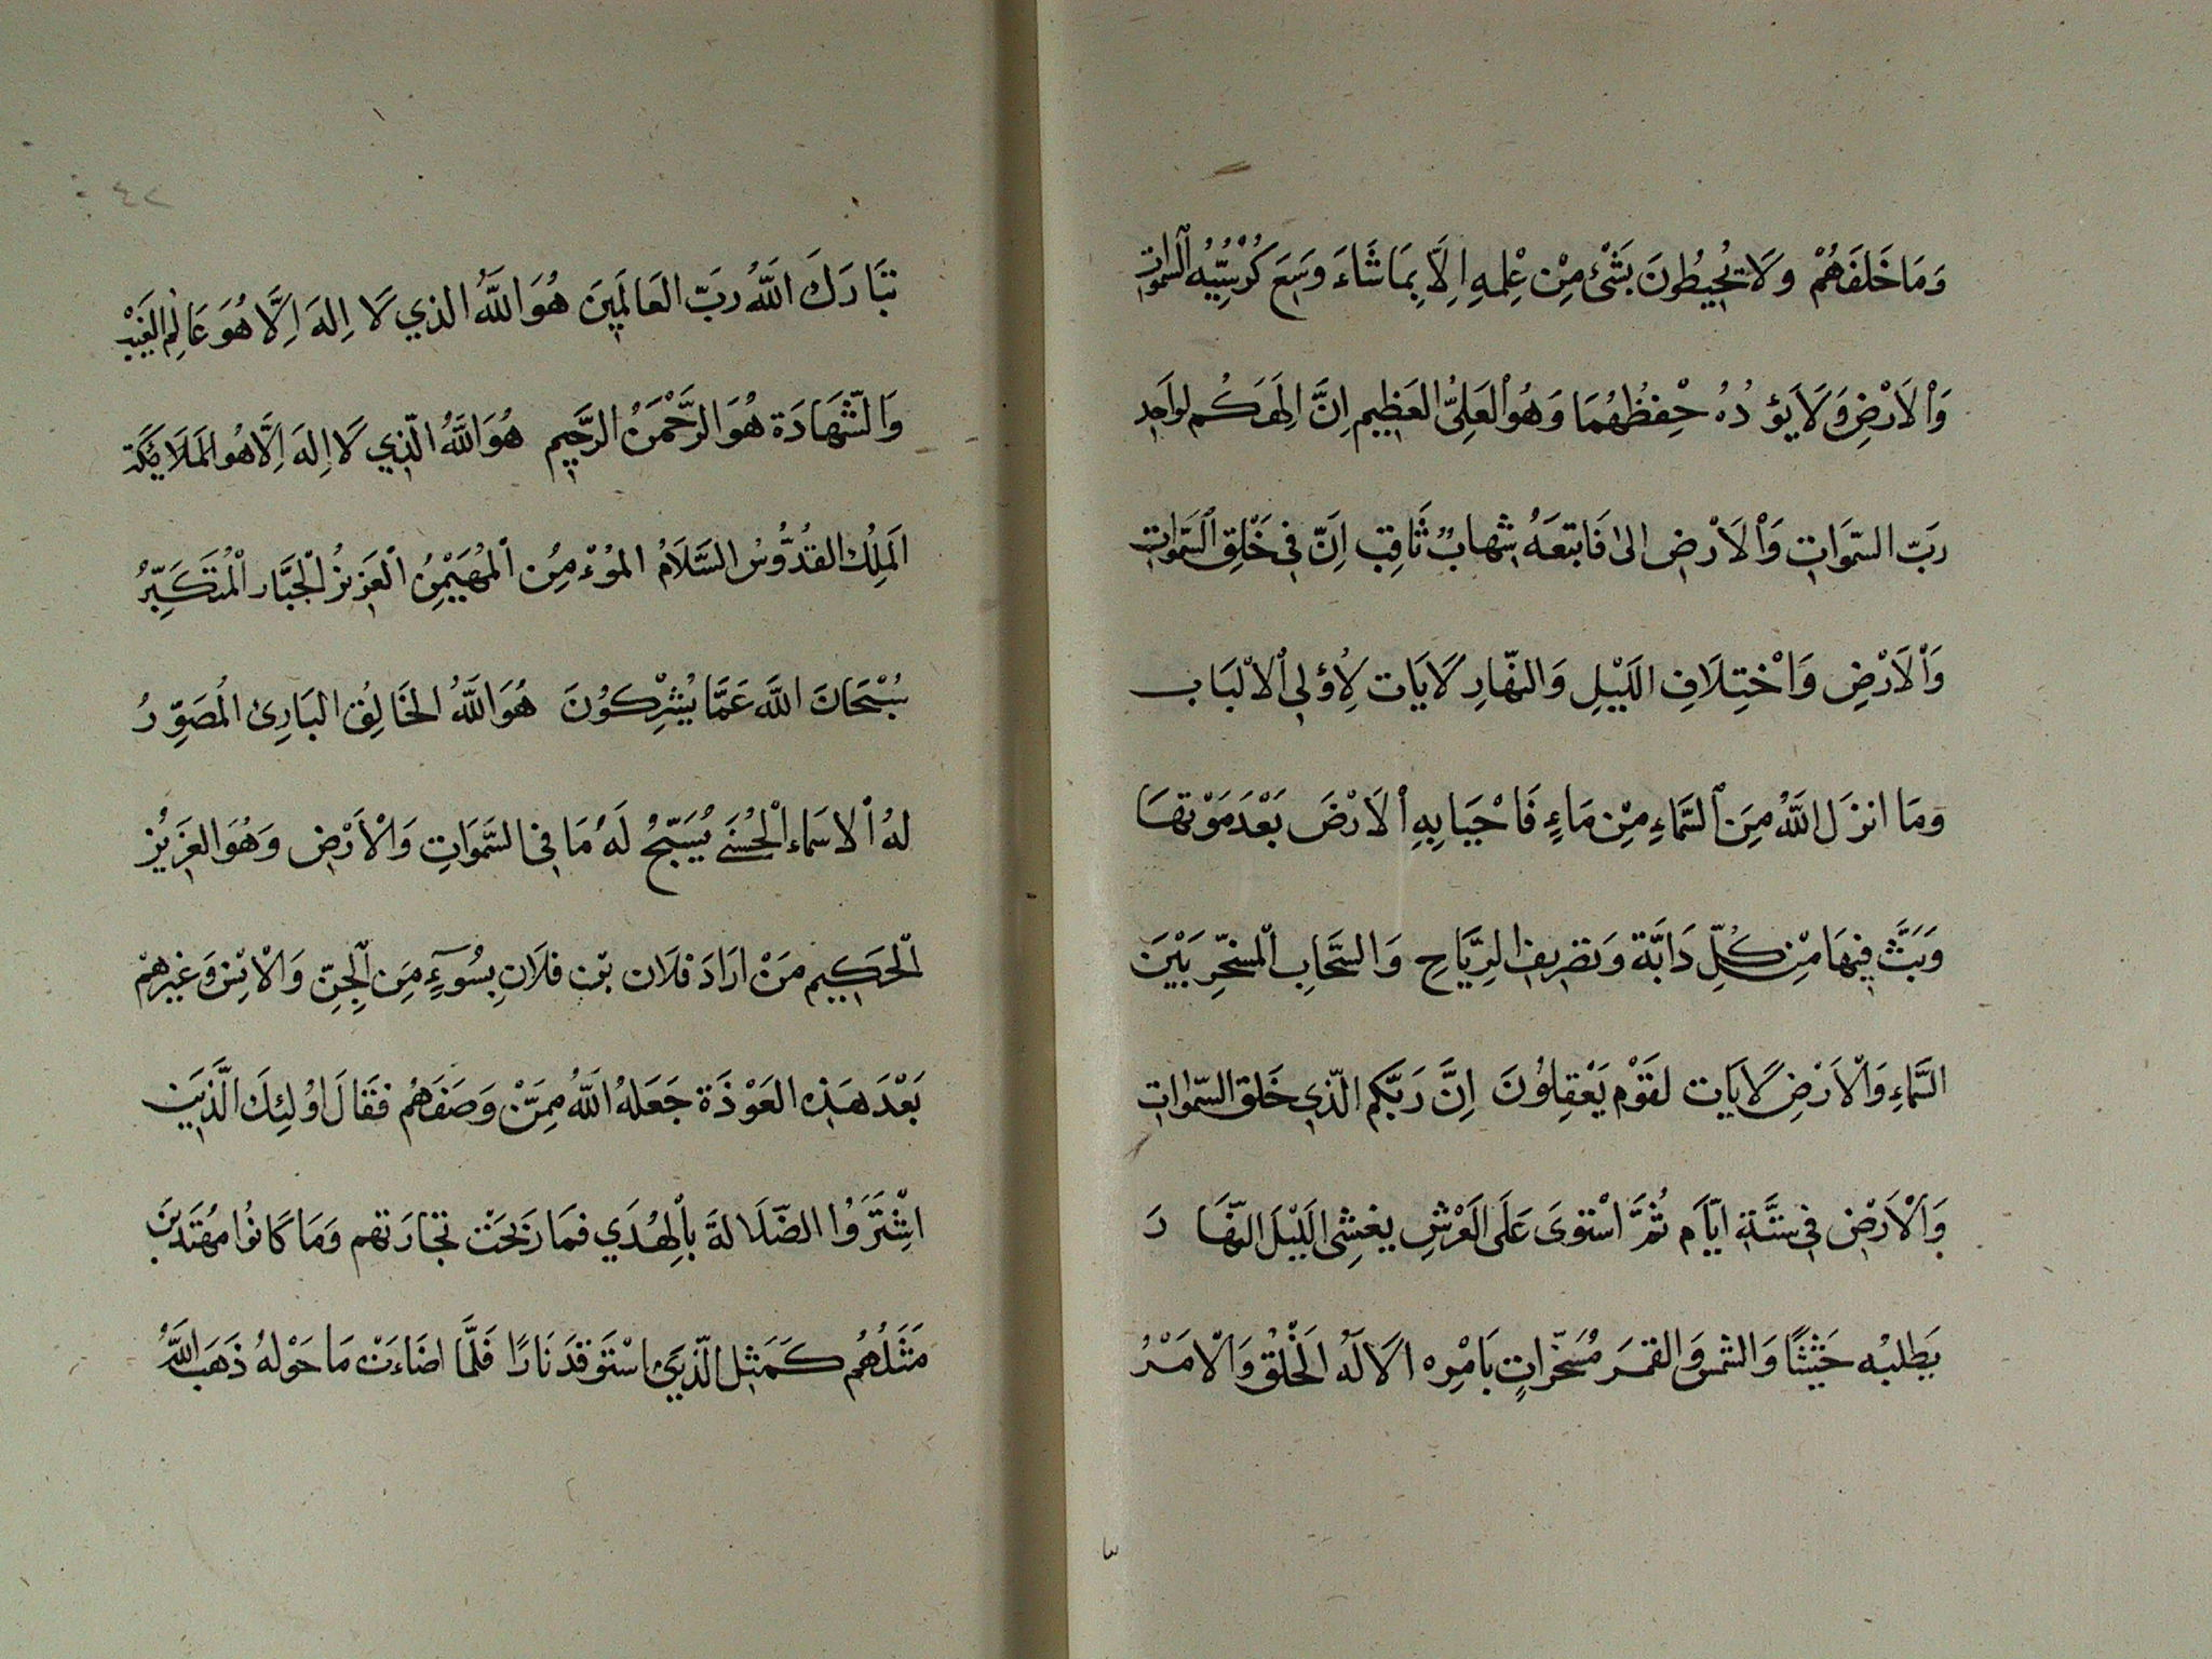 وَمَا خَلفَهُمْ وَلَا يُحِيطُونَ بَشْئٍ مِنْ عِلْمِهِ اِلَّا بِمَا شَاءَ وَسَعَ كُرْسِيُّهُ السَّموَاتِ
وَالْاَرْضِ وَلَا يَؤُدُهُ حِفظُهُمَا وَهُوَ الْعَلِىُّ العَظِيم اِنَّ اِلَهَكُم لَوَاحِد
رَبّ السّمَوَاتِ وَالْاَرْضِ الىٰ فَاتبَعَهُ شِهَابٌ ثَاقِب اِنَّ فِى خَلْقِ السَّمَوَاتِ
وَالْاَرْضِ وَاخْتِلَافِ اللَيْلِ وَالنهَّارِ لَايَات لِاُولِى الْاَلْبَاب
وَمَا انزَل اللَّهُ مِنَ السَّمَاءِ مِنْ مَاءٍ فَاحْيَا بِهِ الْاَرْضَ بَعْدَ مَوْتهَا
وَبَثَّ فِيهَا مِنْ كُلِّ دَابَّة وَتَصْرِيفِ الرِيَّاحِ وَالسَّحَابِ الْمسَخّرِ بَيْنَ
السَّمَاءِ وَالْاَرْضِ لَايَات لقَوْم يَعْقِلُونَ اِنَّ رَبَّكُم الّذِى خَلَق السّمٰوَات
وَالْاَرْضِ فِى سِتَّةِ ايّاَم ثُمَّ اسْتَوىَ عَلَى الَعْرْشِ يغشِى اللَيْلَ النّهَا رَ
يَطلبُه حَثيْثًا وَالشمسَ وَالقمَرَ مُسَخّرَاتٍ بَامْرِه الَا لَهُ الْخَلْقُ وَالْامْرُ
تبَارَكَ اللَّهُ رَبّ العَالَمِينَ هُوَ اللَّهُ الذِي لَا اِلهَ اِلَّا هُوَ عَالِم الغَيْبِ
وَالشّهَادَة هُوَ الرَّحْمَنُ الرَّحِيم هُوَ اللَّهُ الّذِي لَا اِلهَ اِلَّا هُو المَلَايكَة
المَلِكُ القُدُّوسُ السَّلَامُ المُوْءمِن الْمُهَيْمِنُ الْعَزيزُ الْجَبَّار الْمُتَكَبِّرُ
سُبْحَانَ اللَّهِ عَمَّا يُشِرْكوُنَ هُوَ اللَّهُ الخَالِقُ البَارِئ المُصَوّرُ
لهُ الاسمَاء الْحُسْنَے يُسَبّحُ لَهُ مَا فِى السَّمَوَاتِ وَالْاَرْض وَهُوَ العَزِيُز
الْحَكِيم مَنْ ارَادَ فلَان بْن فلَانِ بِسُوٓءٍ مِنَ الْجِنّ وَالْانِسْ وَغيرِهمْ
بَعْدَ هَذِهِ العَوْذَة جَعَلهُ اللَّهُ مِمَّنْ وَصَفَهُم فقَالَ اوُلئِكَ الَّذِيَن
اشْتَرَوُا الضّلَالةَ باْلِهُدَي فمَا رَبحَتْ تجَارَتهم وَمَا كَانوُا مهُتَدِينَ
مَثَلُهُم كَمَثِل الّذِيَ اسْتَوقدَ نَارًا فَلَمَّا اضَاءَتْ مَا حَوْلهُ ذَهَبَ اللَّهُ